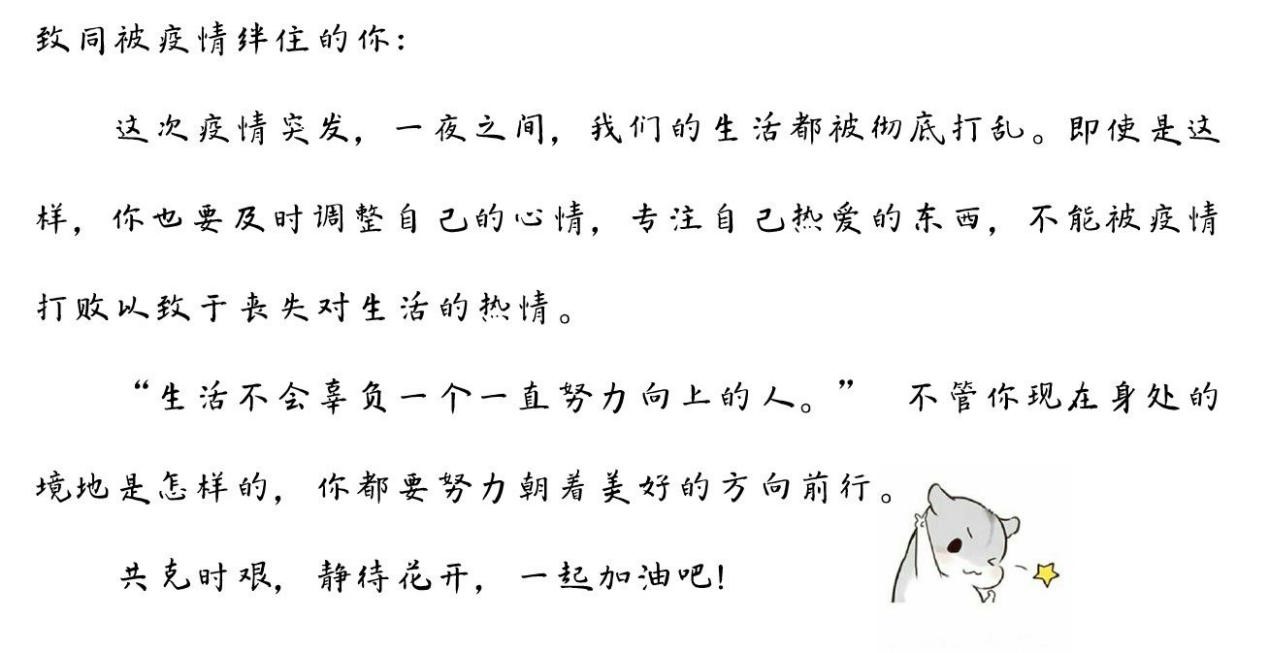 致同被疫情绊住的你：
这次疫情突发，一夜之间，我们的生活都被彻底打乱。即使是这
样，你也要及时调整自己的心情，专注自己热爱的东西，不能被疫情
打败以致于丧失对生活的热情。
“生活不会辜负一个一直努力向上的人。” 不管你现在身处的
境地是怎样的，你都要努力朝着美好的方向前行。
共克时艰，静待花开，一起加油吧！